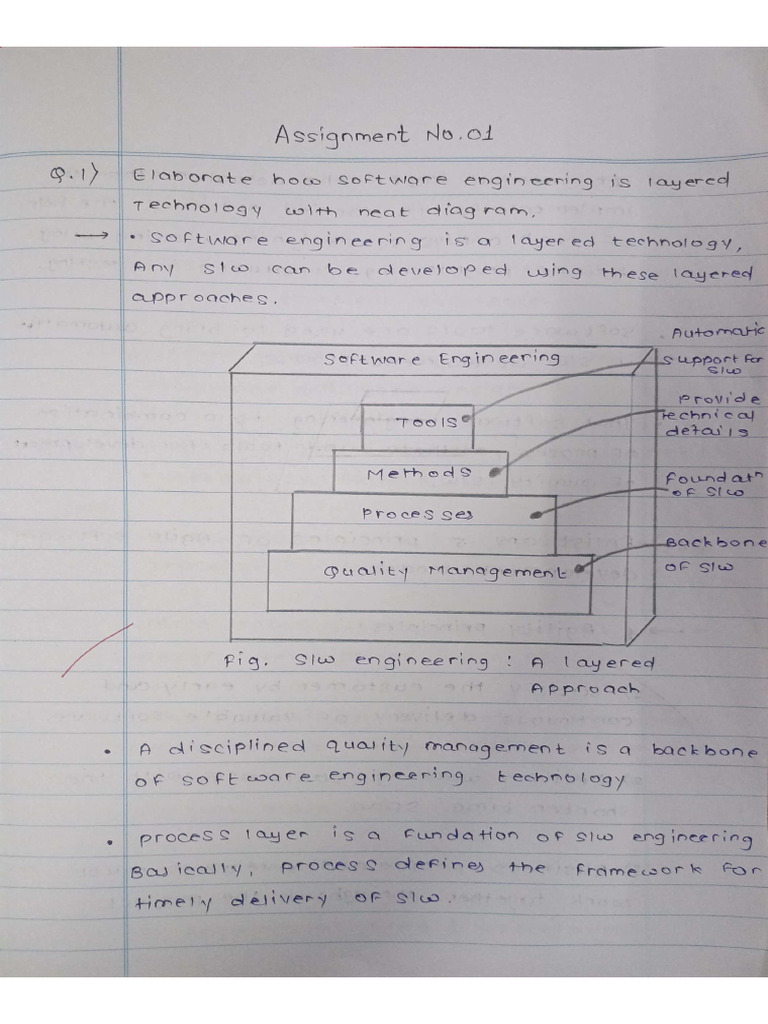 Assignment No.01
Q.1) Elaborate how software engineering is layered
Technology with neat diagram.
→ • Software engineering is a layered technology,
Any S/w can be developed using these layered
approaches.
Software Engineering
Automatic
support for
S/w
Tools
Provide
technical
details
Methods
foundatn
of S/w
Processes
Backbone
of S/w
Quality Management
Fig. S/w engineering : A layered
Approach
• A disciplined quality management is a backbone
of software engineering technology
• process layer is a fundation of S/w engineering
Basically, process defines the framework for
timely delivery of S/w.